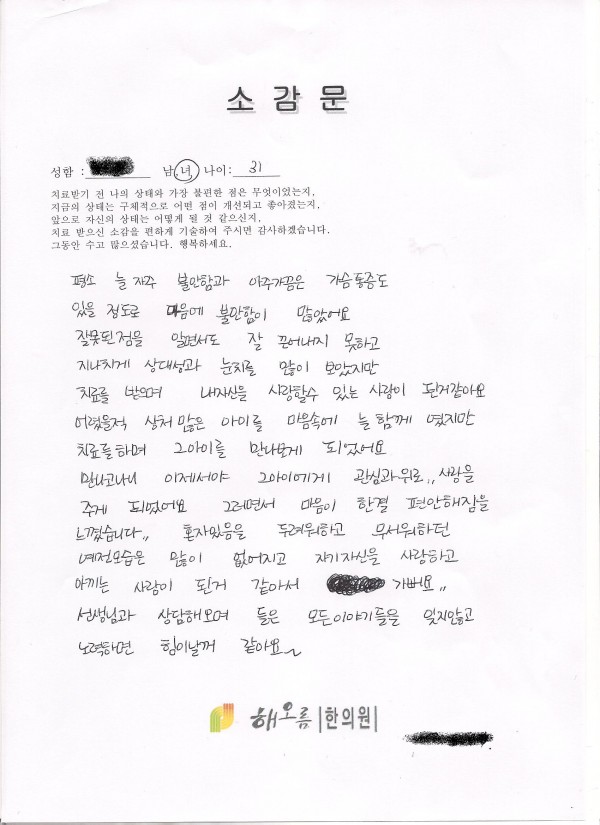 소 감 문
성함 : 남,녀, 나이: 31
치료받기 전 나의 상태와 가장 불편한 점은 무엇이었는지,
지금의 상태는 구체적으로 어떤 점이 개선되고 좋아졌는지,
앞으로 자신의 상태는 어떻게 될 것 같으신지,
치료 받으신 소감을 편하게 기술하여 주시면 감사하겠습니다.
그동안 수고 많으셨습니다. 행복하세요.
평소 늘 자주 불안함과 아주가끔은 가슴통증도
있을 정도로 마음에 불안함이 많았어요
잘못된점을 알면서도 잘 끈어내지 못하고
지나치게 상대성과 눈치를 많이 보았지만
치료를 받으며 내자신을 사랑할수 있는 사람이 된거같아요
어렸을적 상처 많은 아이를 마음속에 늘 함께 였지만
치료를하며 그아이를 만나보게 되었어요
만나고나니 이제서야 그아이에게 관심과위로,, 사랑을
주게 되었어요 그러면서 마음이 한결 편안해짐을
느꼈습니다,, 혼자있음을 두려워하고 무서워하던
예전모습은 많이 없어지고 자기자신을 사랑하고
아끼는 사람이 된거 같아서 기뻐요,,
선생님과 상담해오며 들은 모든이야기들을 잊지않고
노력하면 힘이날꺼 같아요~
해오름 |한의원|